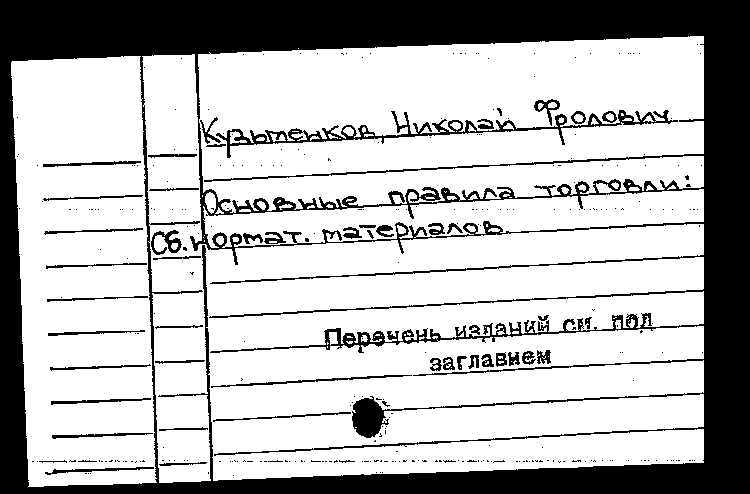 Кузьменков, Николай Фролович
Основные правила торговли:
Сб. нормат. материалов.
Перечень изданий см. под
заглавием